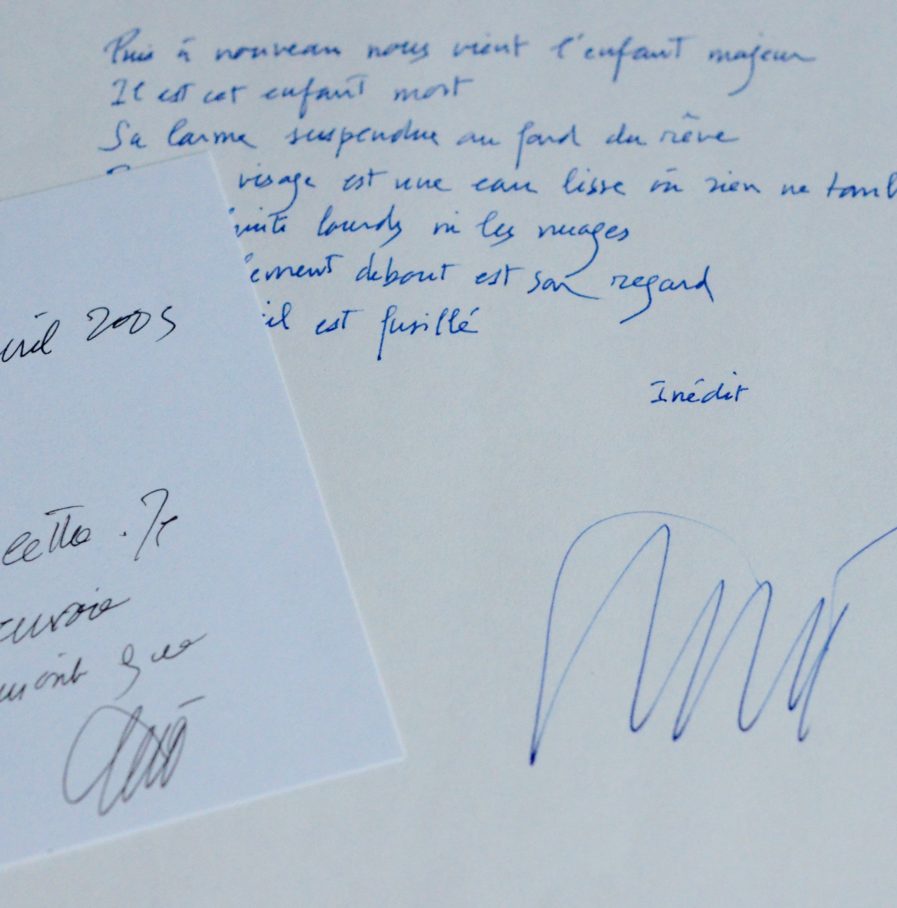 Puis à nouveau nous vient l'enfant majeur
Il est cet enfant mort
Sa larme suspendue au fond du rêve
visage est une eau lisse où rien ne tomb
lourds ni les nuages
debout est son regard
il est fusillé
Inédit
2005
cette. Je
que